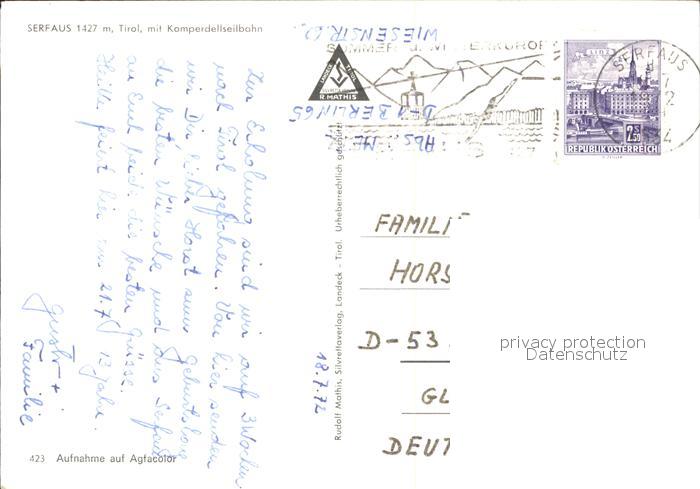 SERFAUS 1427 m, Tirol, mit Komperdellseilbahn
Zur Erholung sind wir auf 3 Wochen
nach Tirol gefahren. Von hier senden
wir Dir lieber Horst zum Geburtstag
die besten Wünsche und aus Serfaus
an Euch beide die besten Grüsse.
hier am 21.7. 13 Jahre.
+
Familie
18.7.72
423 Aufnahme auf Agfacolor
Rudolf Mathis, Silvrettaverlag, Landeck - Tirol. Urheberrechtlich geschützt
LANDECK TIROL
R. MATHIS
WIESENSTR.
D-1 BERLIN 65
ABS.
SOMMER- u. WINTERKURORT
SERFAUS
LINZ
2.50
S
REPUBLIK ÖSTERREICH
FAMILI
HORS
D-53
GL
DEUT
privacy protection
Datenschutz